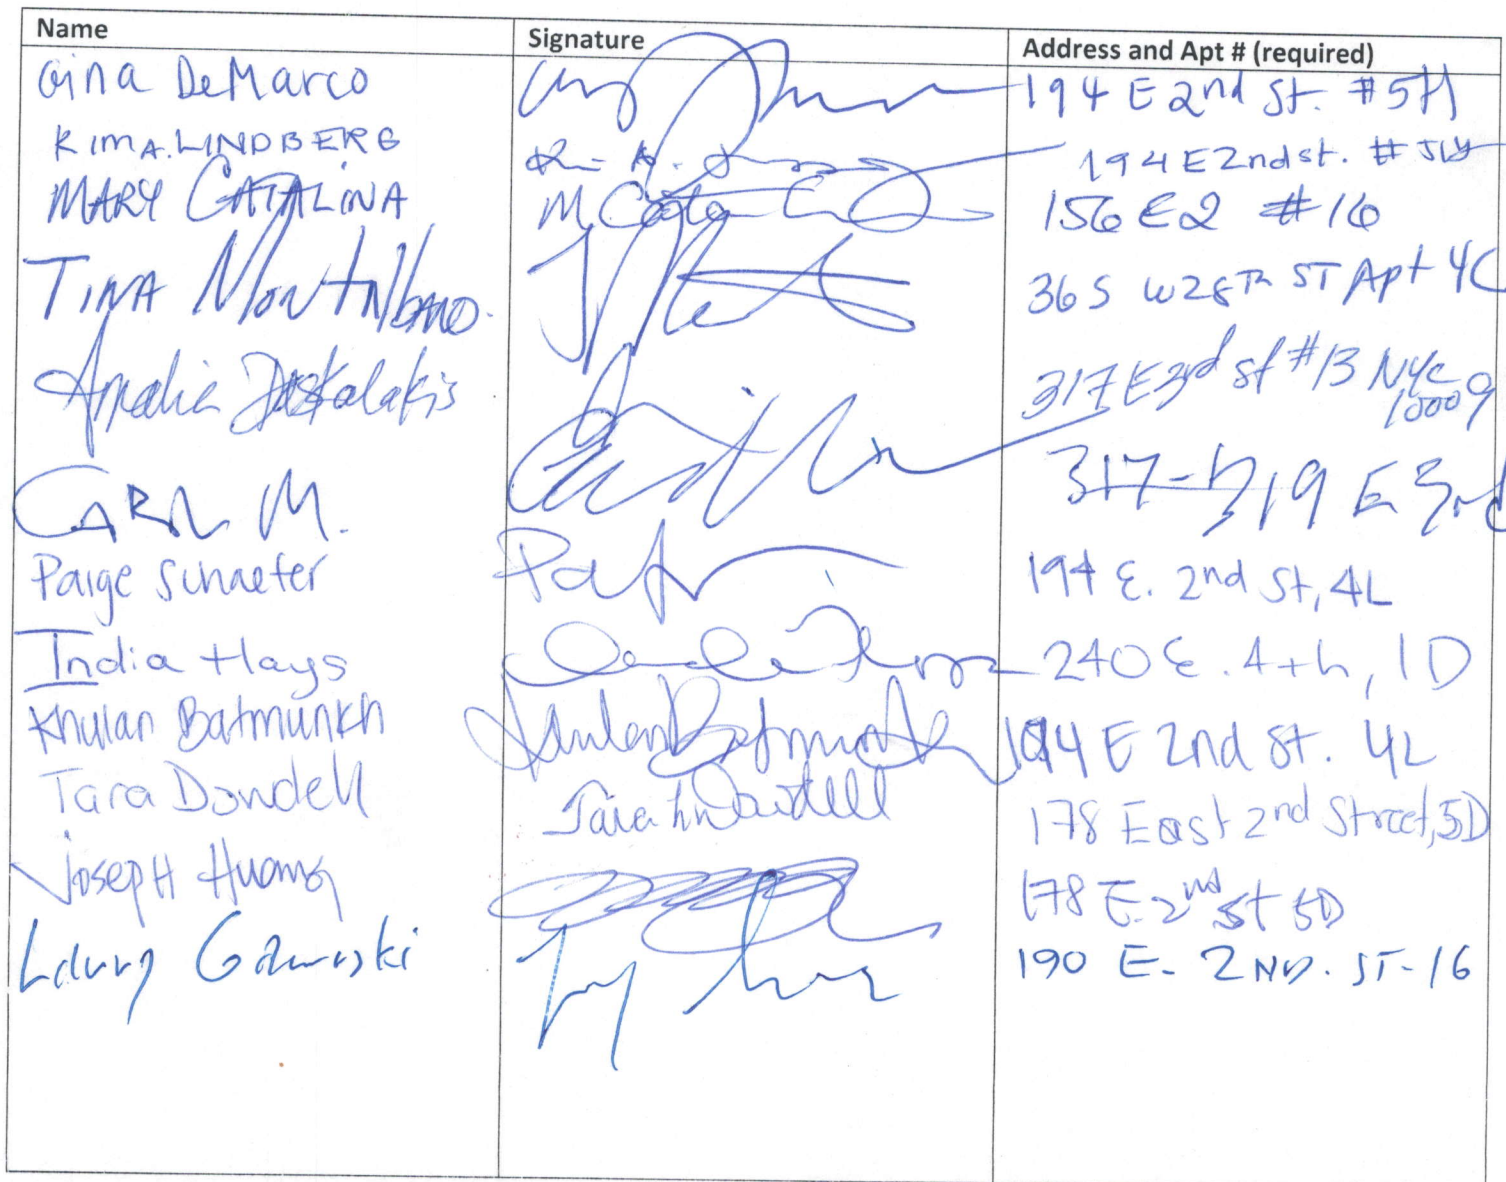 Name Signature Address and Apt # (required)
Gina DeMarco 194 E 2nd St. #5H
KIM A. LINDBERG 194 E 2nd st. #
MARY CATALINA M Cata 156 E2 #16
TINA Montalbano 365 W28Th ST Apt 4C
Amalia Daskalakis 317 E 3rd st #13 NYC
10009
CAROL M. 317-319 E 3rd
Paige Schaefer 194 E. 2nd St, 4L
India Hays 240 E. 4th, 1D
Khulan Batmunkh Khulan Batmunkh 194 E 2nd St. 4L
Tara Dowdell Tara Dowdell 178 East 2nd Street, 5D
Joseph Huang 178 E. 2nd St 5D
190 E. 2ND. ST-16